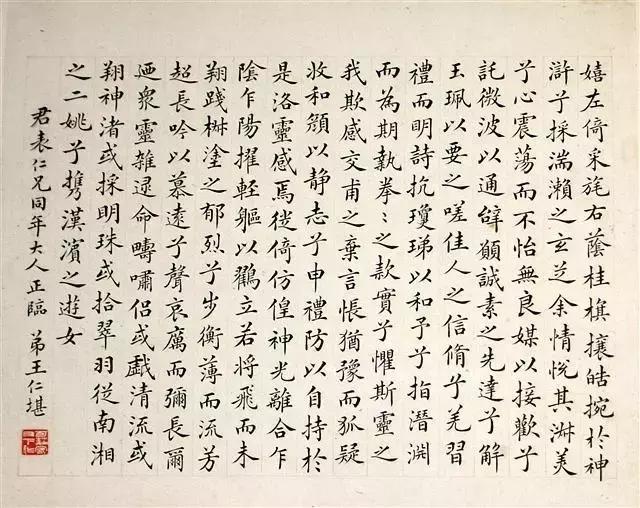 嬉左倚采旄右蔭桂旗攘皓捥於神
滸兮採湍瀨之玄芝余情悅其淑美
兮心震蕩而不怡無良媒以接歡兮
託微波以通辭願誠素之先達兮解
玉珮以要之嗟佳人之信脩兮羌習
禮而明詩抗瓊珶以和予兮指潛淵
而為期執拳〻之款實兮懼斯靈之
我欺感交甫之棄言悵猶豫而狐疑
收和顏以静志兮申禮防以自持於
是洛靈感焉徙倚仿偟神光離合乍
陰乍陽擢輕軀以鸖立若將飛而未
翔踐椒塗之郁烈兮步衡薄而流芳
超長吟以慕遠兮聲哀厲而彌長爾
迺衆靈雜遝命疇嘯侣或戲清流或
翔神渚或採明珠或拾翠羽從南湘
之二姚兮携漢濱之遊女
君表仁兄同年大人正臨 弟王仁堪